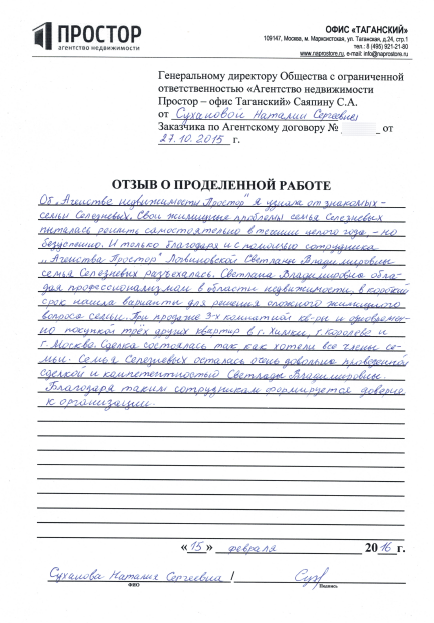 ПРОСТОР
агентство недвижимости
ОФИС «ТАГАНСКИЙ»
109147, Москва, м. Марксистская, ул. Таганская, д.24, стр.1
тел.: 8 (495) 921-21-80
www.naprostore.ru, e-mail: info@naprostore.ru
Генеральному директору Общества с ограниченной
ответственностью «Агентство недвижимости
Простор – офис Таганский» Саяпину С.А.
от Сухановой Наталии Сергеевны
Заказчика по Агентскому договору № от
27.10.2015 г.
ОТЗЫВ О ПРОДЕЛЕННОЙ РАБОТЕ
Об „Агенстве недвижимости Простор" я узнала от знакомых -
семьи Селезневых. Свои жилищные проблемы семья Селезневых
пыталась решить самостоятельно в течении целого года, - но
безуспешно. И только благодаря и с помощью сотрудника
„Агенства Простор" Логвиновской Светланы Владимировны
семья Селезневых разъехалась. Светлана Владимировна обла-
дая профессионализмом в области недвижимости, в короткий
срок нашла варианты для решения сложного жилищного
вопроса семьи. При продаже 3-х комнатной кв-ры и одновремен-
но покупкой трёх других квартир в г. Химки, г. Королёво и
г. Москва. Сделка состоялась так, как хотели все члены се-
мьи. Семья Селезневых осталась очень довольна проведенной
сделкой и компетентностью Светланы Владимировны.
Благодаря таким сотрудникам формируется доверие
к организации.
«15» февраля 2016 г.
Суханова Наталия Сергеевна /
ФИО Подпись